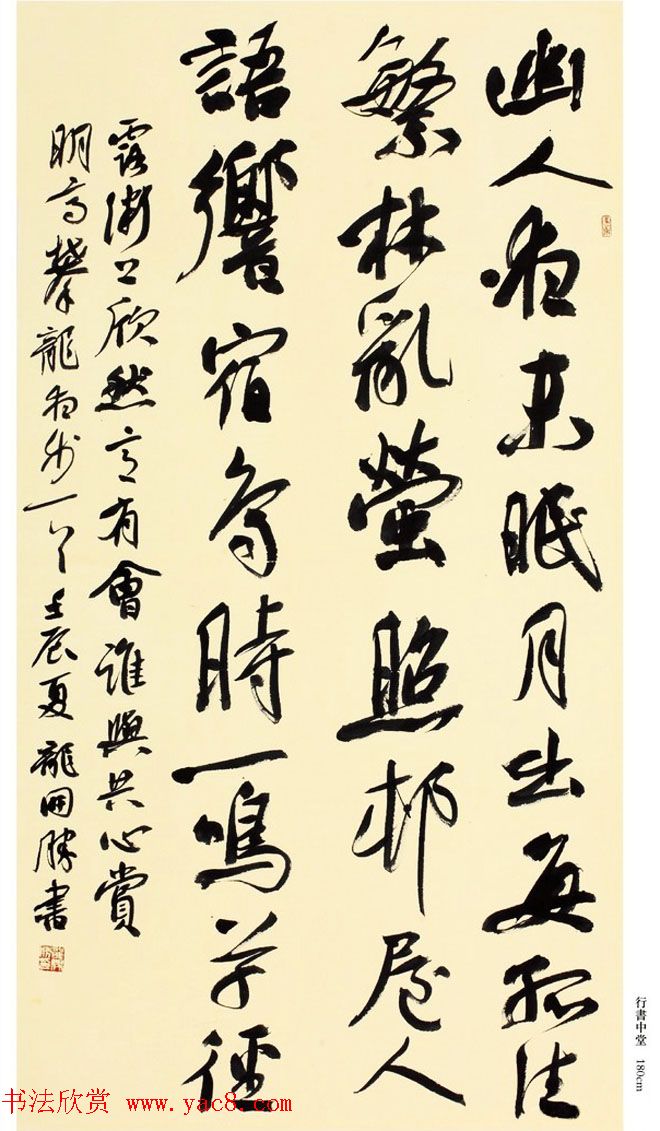 幽人夜未眠月出每孤往
繁林亂螢照邨屋人
語響宿鳥時一鳴草徑
露微上欣然意有會誰與共心賞
明高攀龍夜步一首壬辰夏龍開勝書
行書中堂 180cm
书法欣赏 www.yac8.com